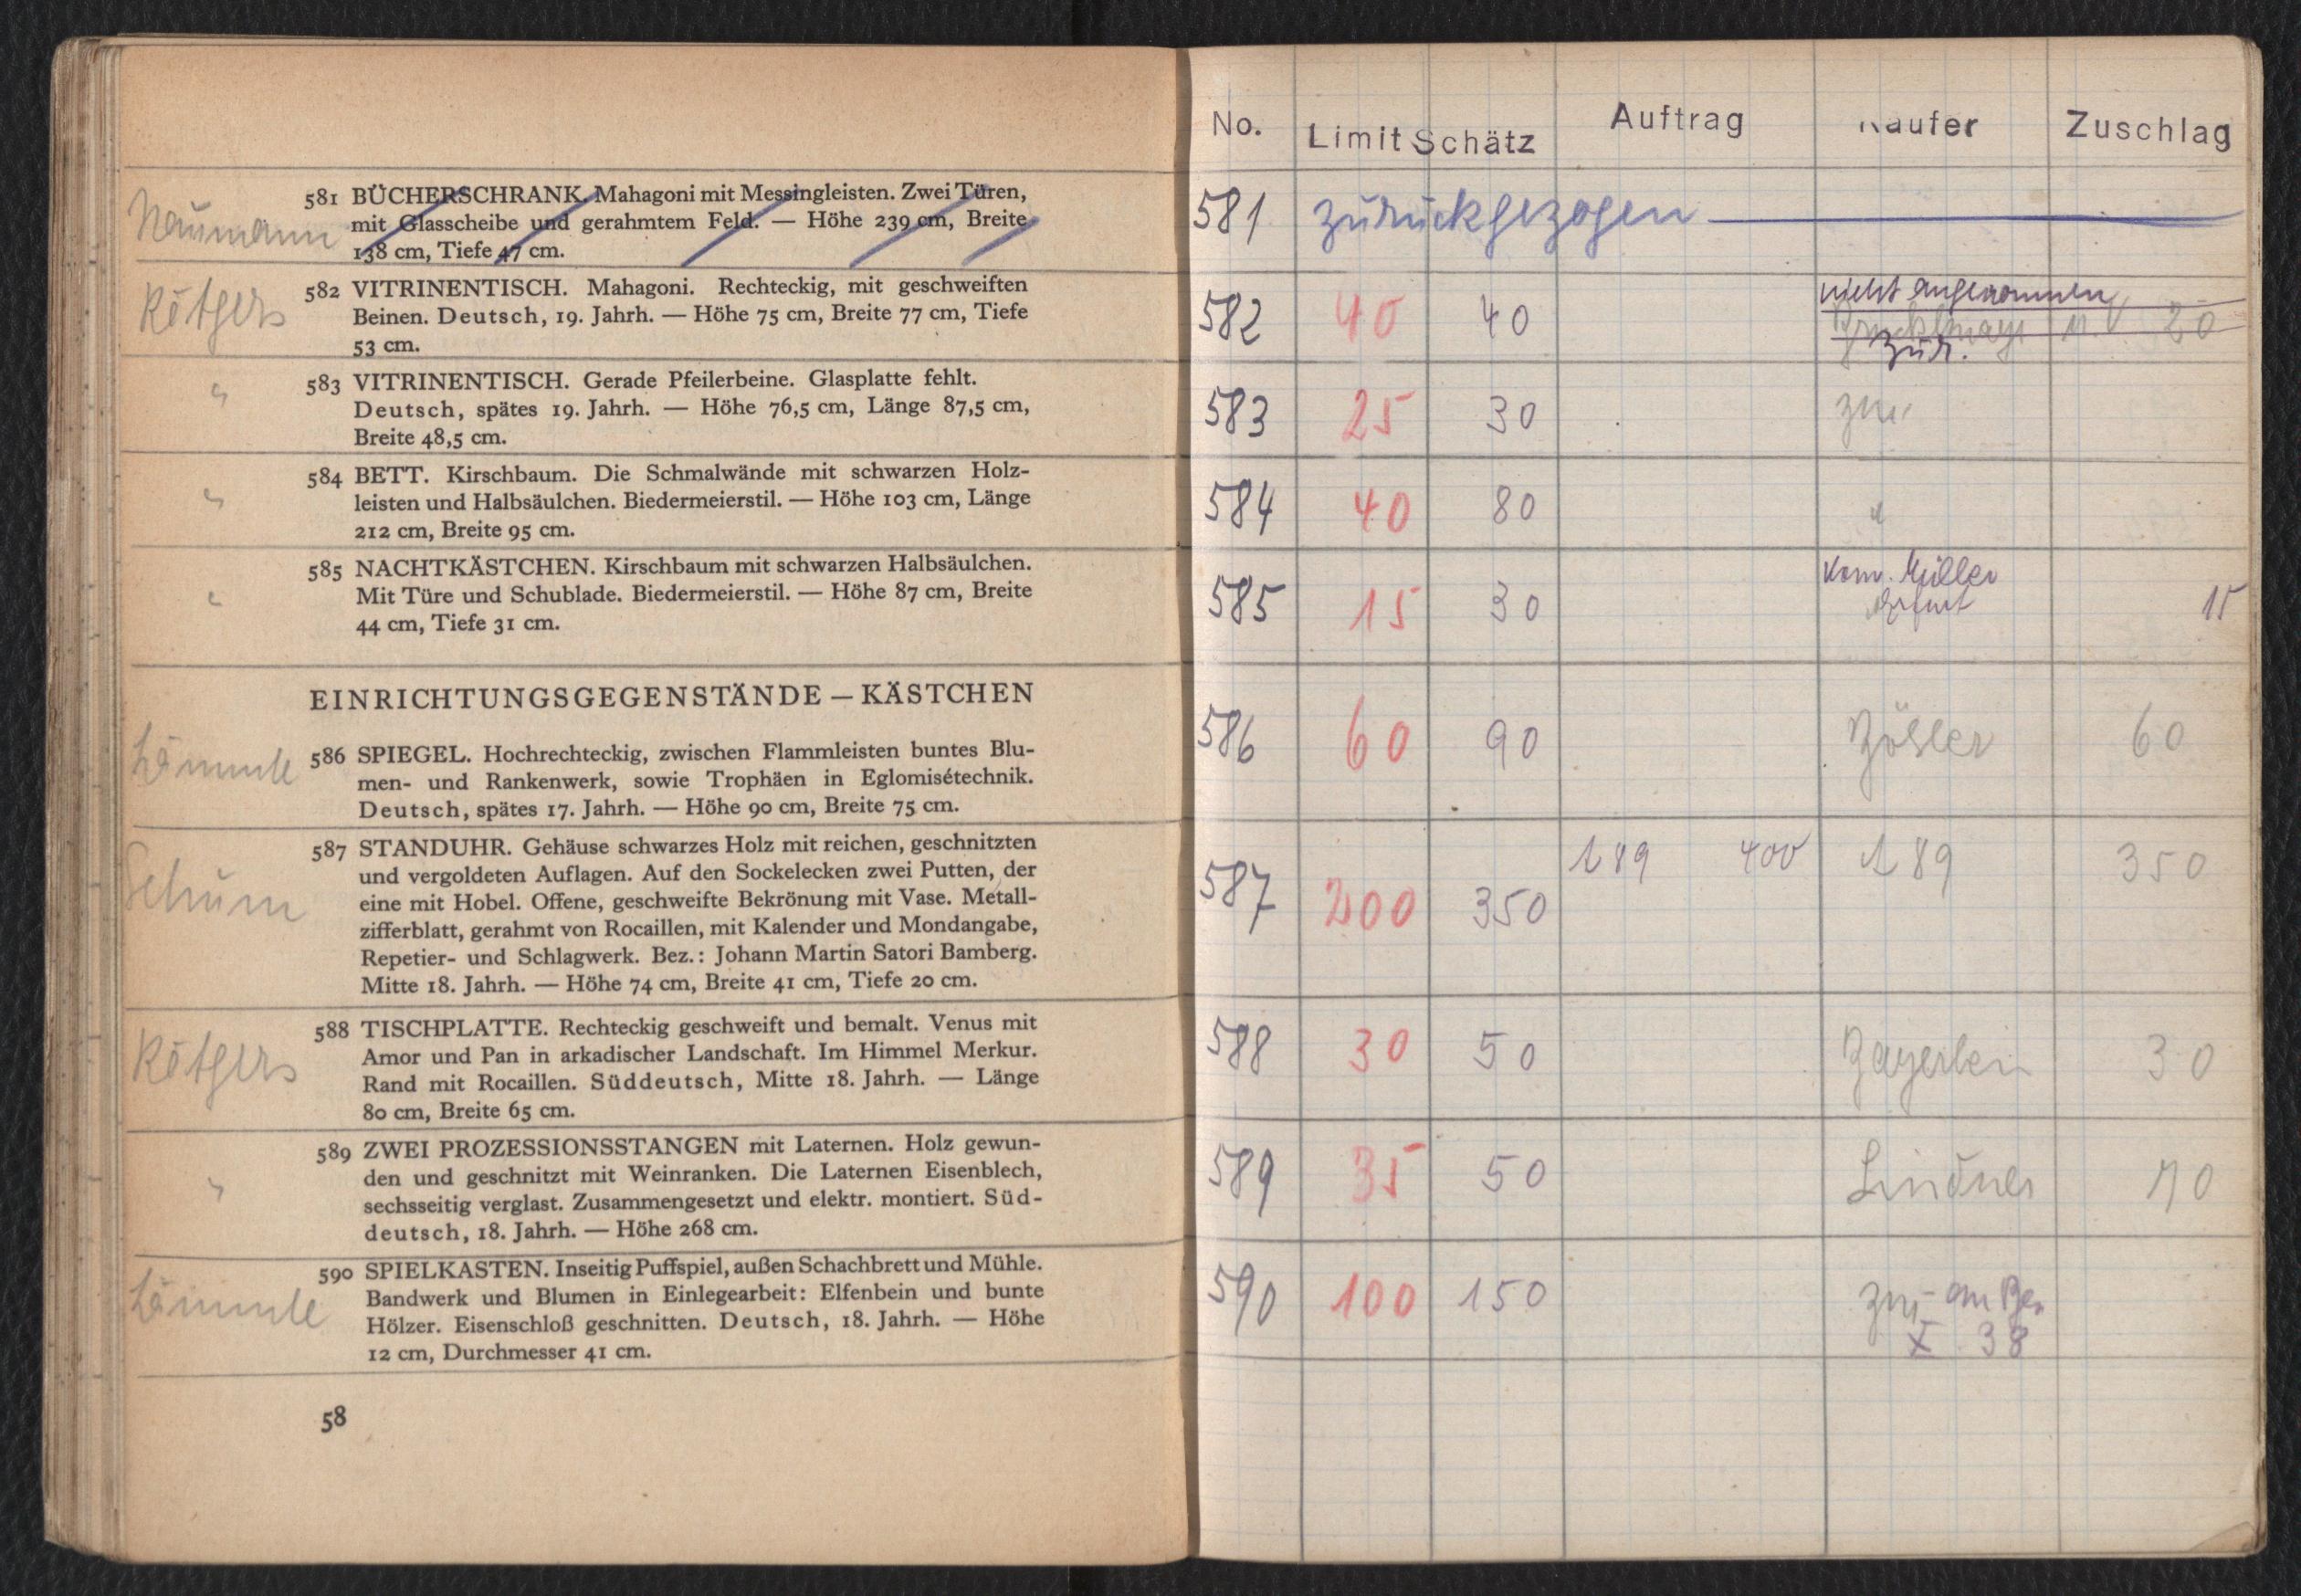 Naumann
581 BÜCHERSCHRANK. Mahagoni mit Messingleisten. Zwei Türen,
mit Glasscheibe und gerahmtem Feld. — Höhe 239 cm, Breite
138 cm, Tiefe 47 cm.
Rötgers
582 VITRINENTISCH. Mahagoni. Rechteckig, mit geschweiften
Beinen. Deutsch, 19. Jahrh. — Höhe 75 cm, Breite 77 cm, Tiefe
53 cm.
"
583 VITRINENTISCH. Gerade Pfeilerbeine. Glasplatte fehlt.
Deutsch, spätes 19. Jahrh. — Höhe 76,5 cm, Länge 87,5 cm,
Breite 48,5 cm.
"
584 BETT. Kirschbaum. Die Schmalwände mit schwarzen Holz-
leisten und Halbsäulchen. Biedermeierstil. — Höhe 103 cm, Länge
212 cm, Breite 95 cm.
"
585 NACHTKÄSTCHEN. Kirschbaum mit schwarzen Halbsäulchen.
Mit Türe und Schublade. Biedermeierstil. — Höhe 87 cm, Breite
44 cm, Tiefe 31 cm.
EINRICHTUNGSGEGENSTÄNDE – KÄSTCHEN
Lämmle
586 SPIEGEL. Hochrechteckig, zwischen Flammleisten buntes Blu-
men- und Rankenwerk, sowie Trophäen in Eglomisétechnik.
Deutsch, spätes 17. Jahrh. — Höhe 90 cm, Breite 75 cm.
Schum
587 STANDUHR. Gehäuse schwarzes Holz mit reichen, geschnitzten
und vergoldeten Auflagen. Auf den Sockelecken zwei Putten, der
eine mit Hobel. Offene, geschweifte Bekrönung mit Vase. Metall-
zifferblatt, gerahmt von Rocaillen, mit Kalender und Mondangabe,
Repetier- und Schlagwerk. Bez.: Johann Martin Satori Bamberg.
Mitte 18. Jahrh. — Höhe 74 cm, Breite 41 cm, Tiefe 20 cm.
Rötgers
588 TISCHPLATTE. Rechteckig geschweift und bemalt. Venus mit
Amor und Pan in arkadischer Landschaft. Im Himmel Merkur.
Rand mit Rocaillen. Süddeutsch, Mitte 18. Jahrh. — Länge
80 cm, Breite 65 cm.
"
589 ZWEI PROZESSIONSSTANGEN mit Laternen. Holz gewun-
den und geschnitzt mit Weinranken. Die Laternen Eisenblech,
sechsseitig verglast. Zusammengesetzt und elektr. montiert. Süd-
deutsch, 18. Jahrh. — Höhe 268 cm.
Lämmle
590 SPIELKASTEN. Inseitig Puffspiel, außen Schachbrett und Mühle.
Bandwerk und Blumen in Einlegearbeit: Elfenbein und bunte
Hölzer. Eisenschloß geschnitten. Deutsch, 18. Jahrh. — Höhe
12 cm, Durchmesser 41 cm.
58
No. Limit Schätz Auftrag Käufer Zuschlag
581 zurückgezogen
nicht angenommen
582 40 40 20
zur.
583 25 30 zur
584 40 80 "
Kom. Müller
585 15 30 Erfurt 15
586 60 90 Zösler 60
587 200 350 189 400 189 350
588 30 50 Bayerlein 30
589 35 50 Lindner 70
590 100 150 zur
X 38